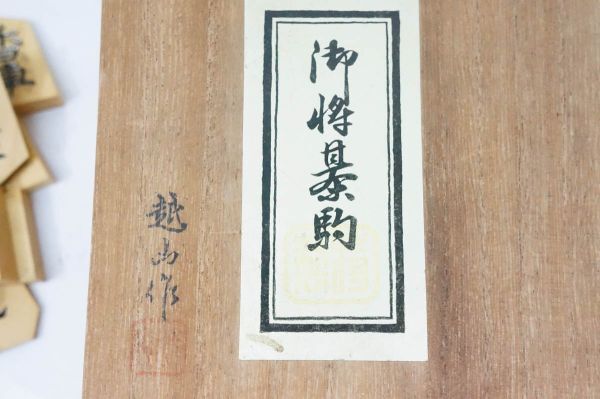 御将棊駒
越山作